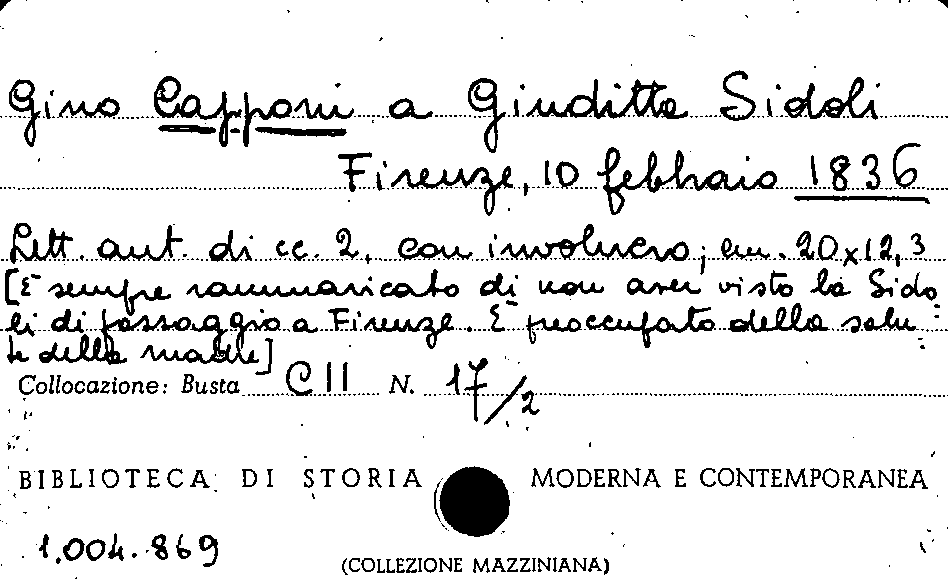 Gino Capponi a Giuditta Sidoli
Firenze, 10 febbraio 1836
Lett. aut. di cc. 2, con involucro; cm. 20x12,3
[È sempre rammaricato di non aver visto la Sido
li di passaggio a Firenze. È preoccupato della salu-
te della madre]
Collocazione: Busta CII N. 17/2
BIBLIOTECA DI STORIA MODERNA E CONTEMPORANEA
1.004.869
(COLLEZIONE MAZZINIANA)